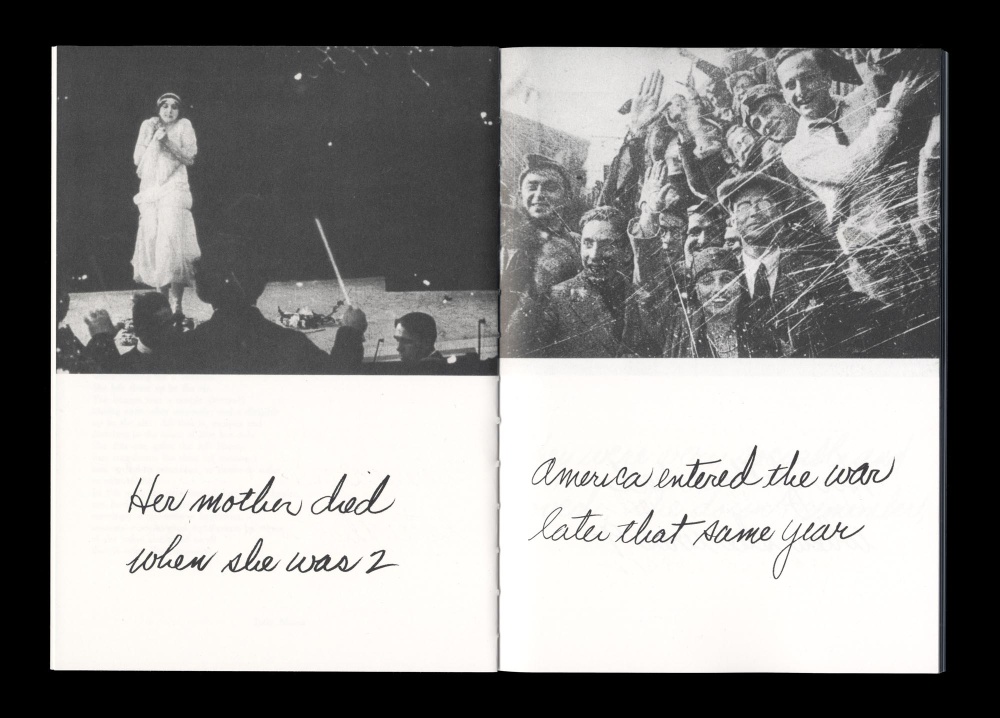 Her mother died
when she was 2
America entered the war
later that same year